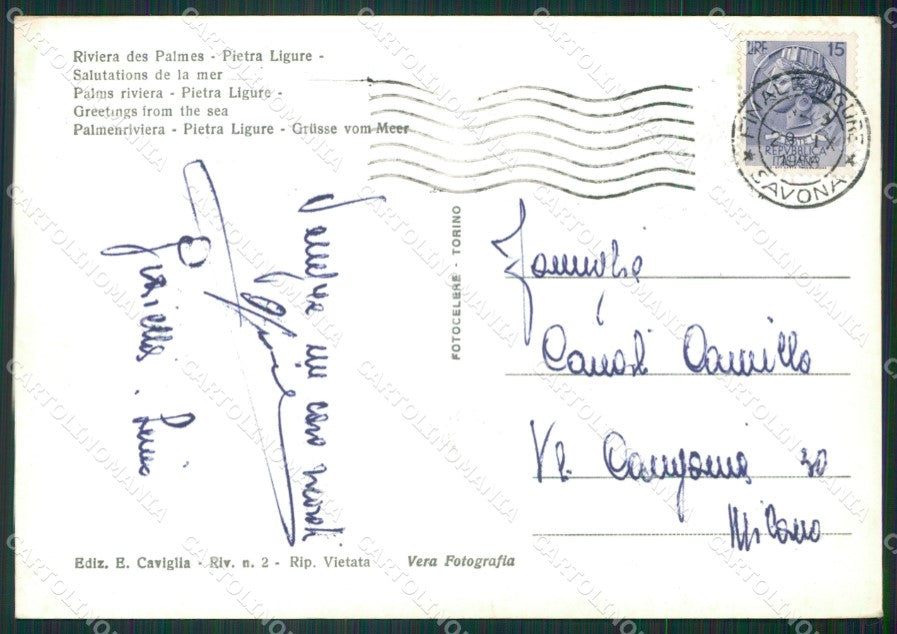 Riviera des Palmes - Pietra Ligure -
Salutations de la mer
Palms riviera - Pietra Ligure -
Greetings from the sea
Palmenriviera - Pietra Ligure - Grüsse vom Meer
LIRE 15
REPVBBLICA
ITALIANA
FINALE LIGURE
SAVONA
FOTOCELERE - TORINO
un caro
Famiglia
Canali Camillo
Vl. Campania 30
Milano
Ediz. E. Caviglia - Riv. n. 2 - Rip. Vietata
Vera Fotografia
CARTOLINOMANIA